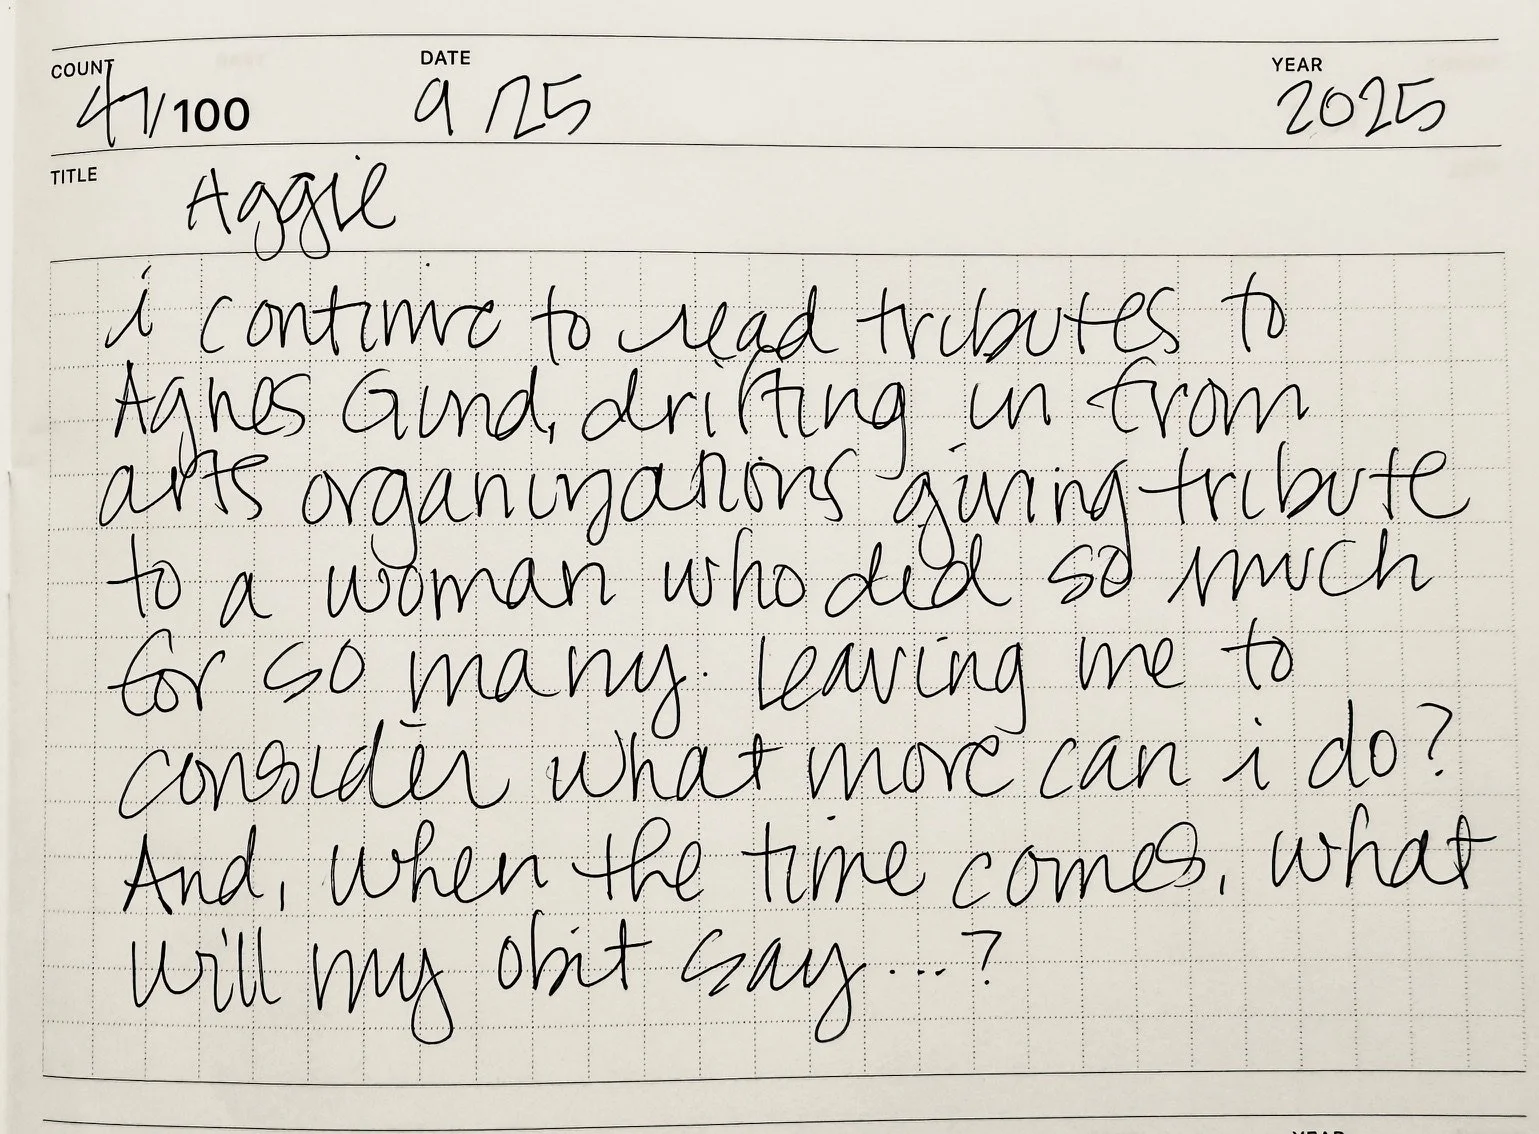 COUNT DATE YEAR
47/100 9/25 2025
TITLE Aggie
i continue to read tributes to
Agnes Gund, drifting in from
arts organizations giving tribute
to a woman who did so much
for so many. Leaving me to
consider what more can i do?
And, when the time comes, what
will my obit say...?
YEAR